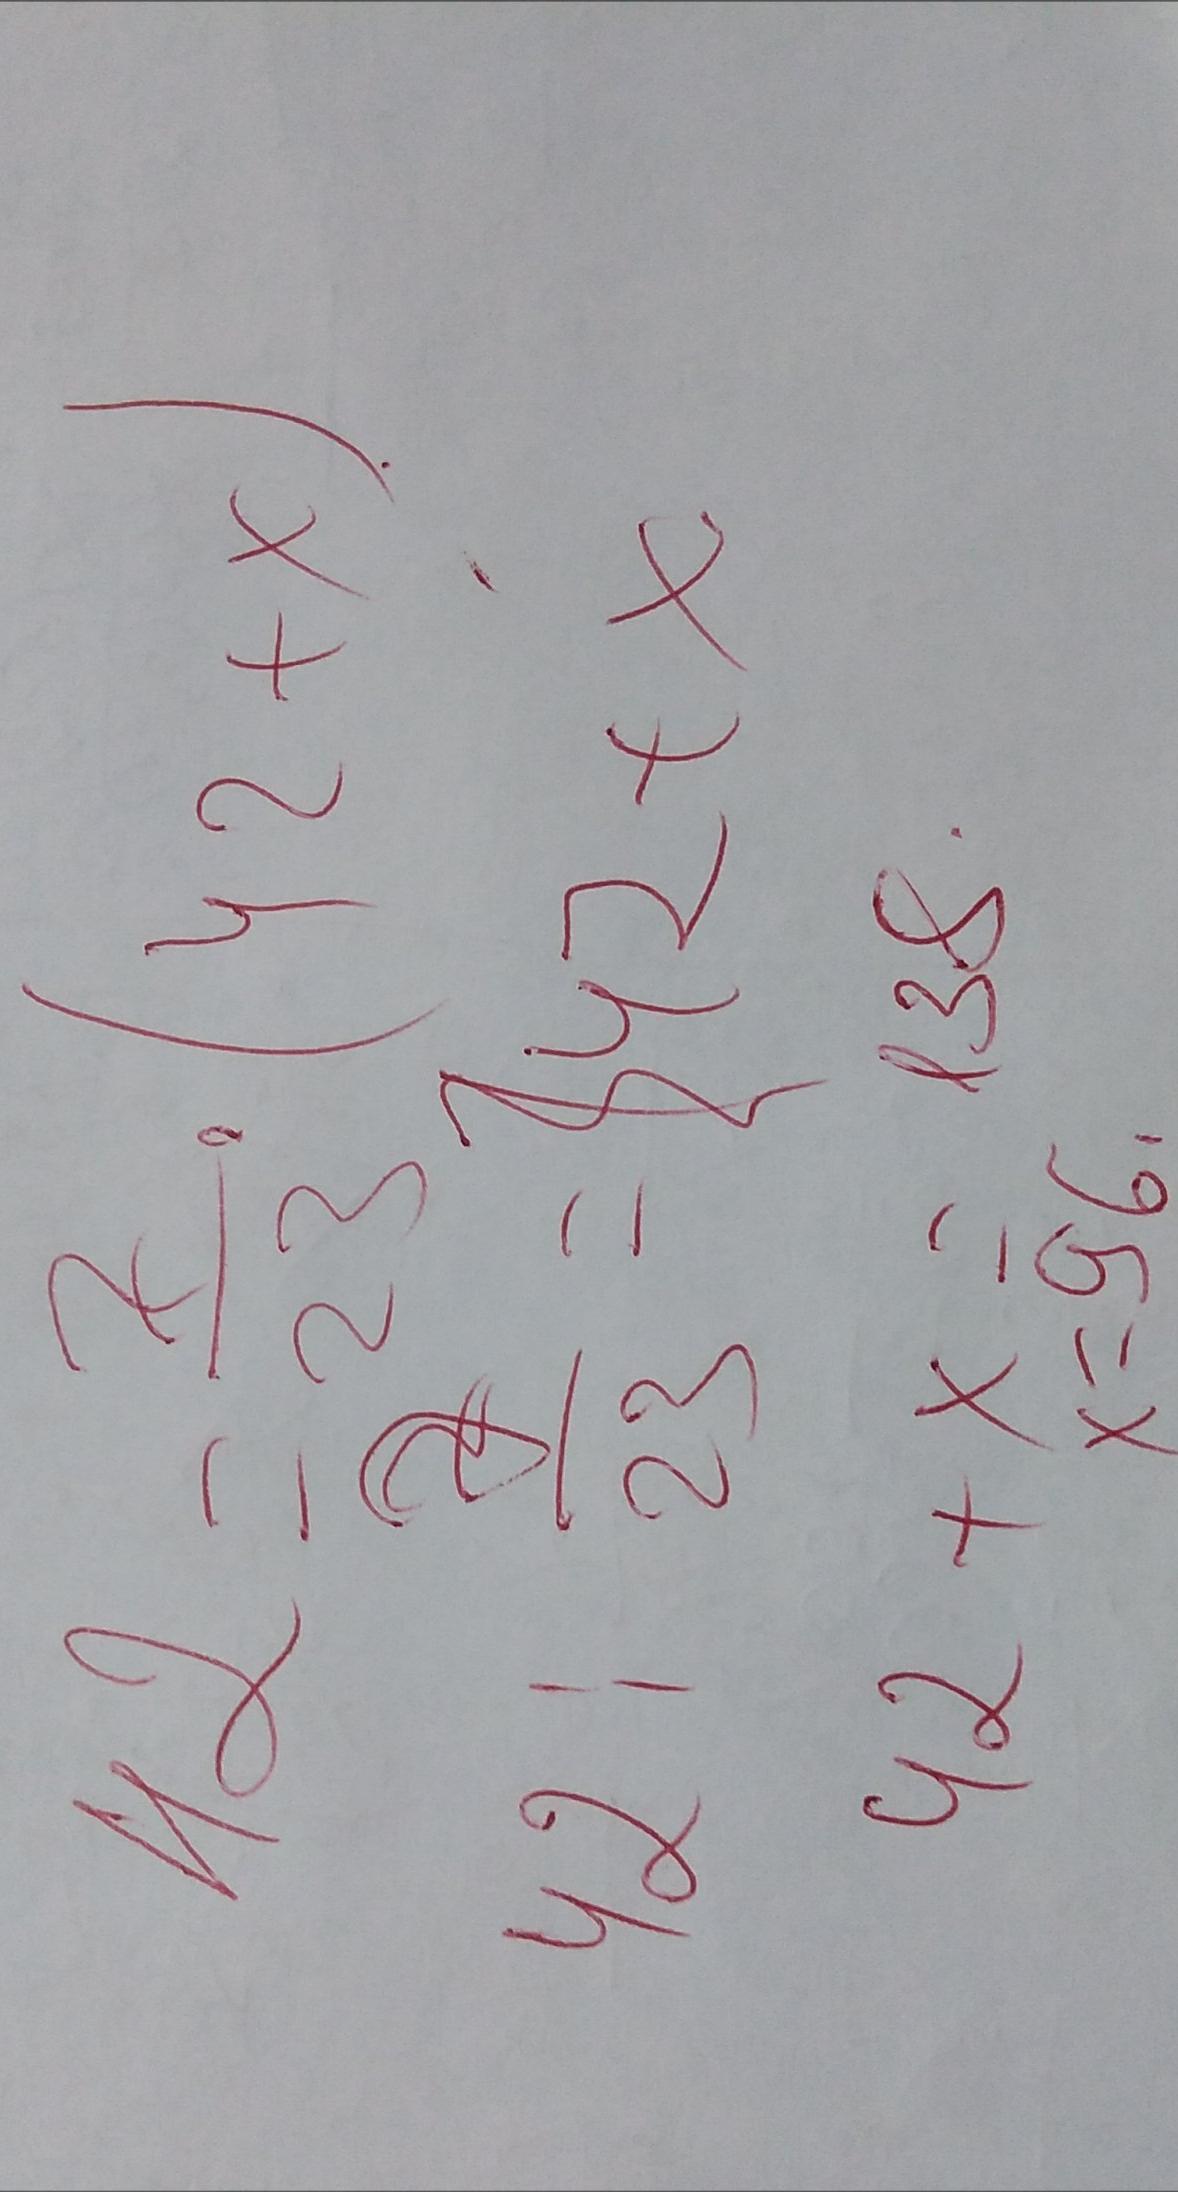 42 = 7/23 · (42 + x).
42 ÷ 7/23 = 42 + x
42 + x = 138.
x = 96.